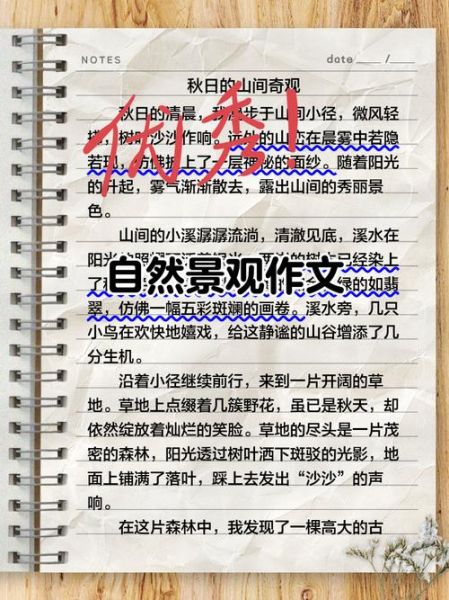 NOTES
date ___ /___
秋日的山间奇观
秋日的清晨，我漫步于山间小径，微风轻
，树叶沙沙作响。远处的山峦在晨雾中若隐
若现，仿佛披上了一层神秘的面纱。随着阳光
的升起，雾气渐渐散去，露出山间的秀丽景
色。
优秀！
山间的小溪潺潺流淌，清澈见底，溪水在
阳光
已经染上
了
自然景观作文
绿的如翡
翠，仿佛一幅五彩斑斓的画卷。溪水旁，几只
小鸟在欢快地嬉戏，给这静谧的山谷增添了几
分生机。
沿着小径继续前行，来到一片开阔的草
地。草地上点缀着几簇野花，虽已是秋天，却
依然绽放着灿烂的笑脸。草地的尽头是一片茂
密的森林，阳光透过树叶洒下斑驳的光影，地
面上铺满了落叶，踩上去发出“沙沙”的声
响。
在这片森林中，我发现了一棵高大的古